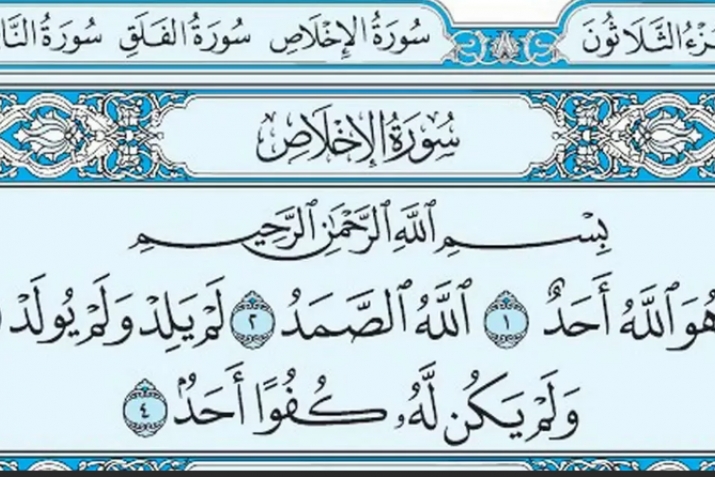 سُورَةُ الإِخْلَاصِ سُورَةُ الفَلَقِ سُورَةُ النَّا
جُزْءُ الثَّلَاثُونَ
سُورَةُ الإِخْلَاصِ
بِسْمِ ٱللَّهِ ٱلرَّحْمَٰنِ ٱلرَّحِيمِ
هُوَ ٱللَّهُ أَحَدٌ ١ ٱللَّهُ ٱلصَّمَدُ ٢ لَمْ يَلِدْ وَلَمْ يُولَدْ
وَلَمْ يَكُن لَّهُۥ كُفُوًا أَحَدٌۢ ٤